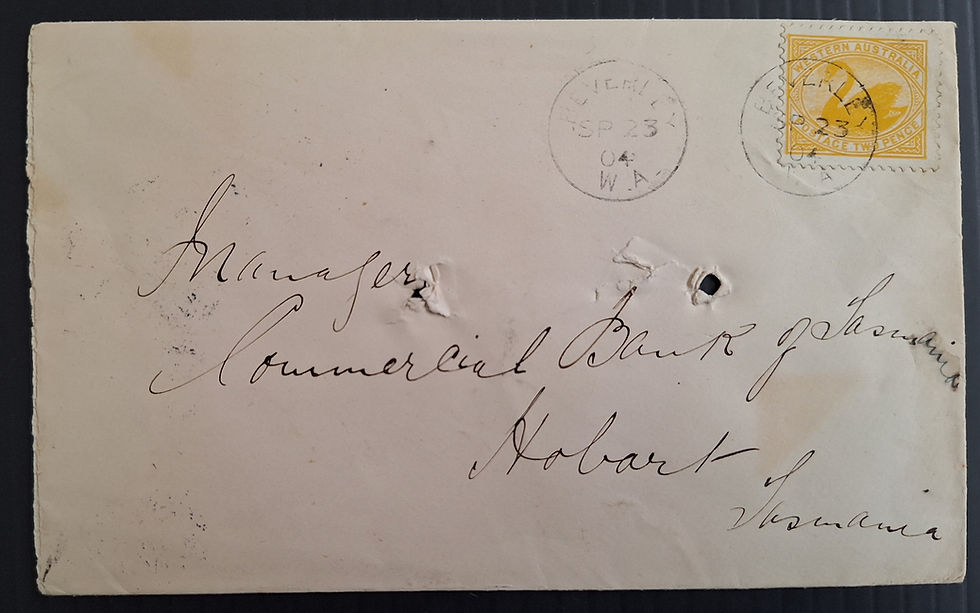 BEVERLEY
SP 23
04
W.A.
BEVERLEY
P 23
04
A
WESTERN AUSTRALIA
POSTAGE TWO PENCE
Manager
Commercial Bank of Tasmania
Hobart
Tasmania